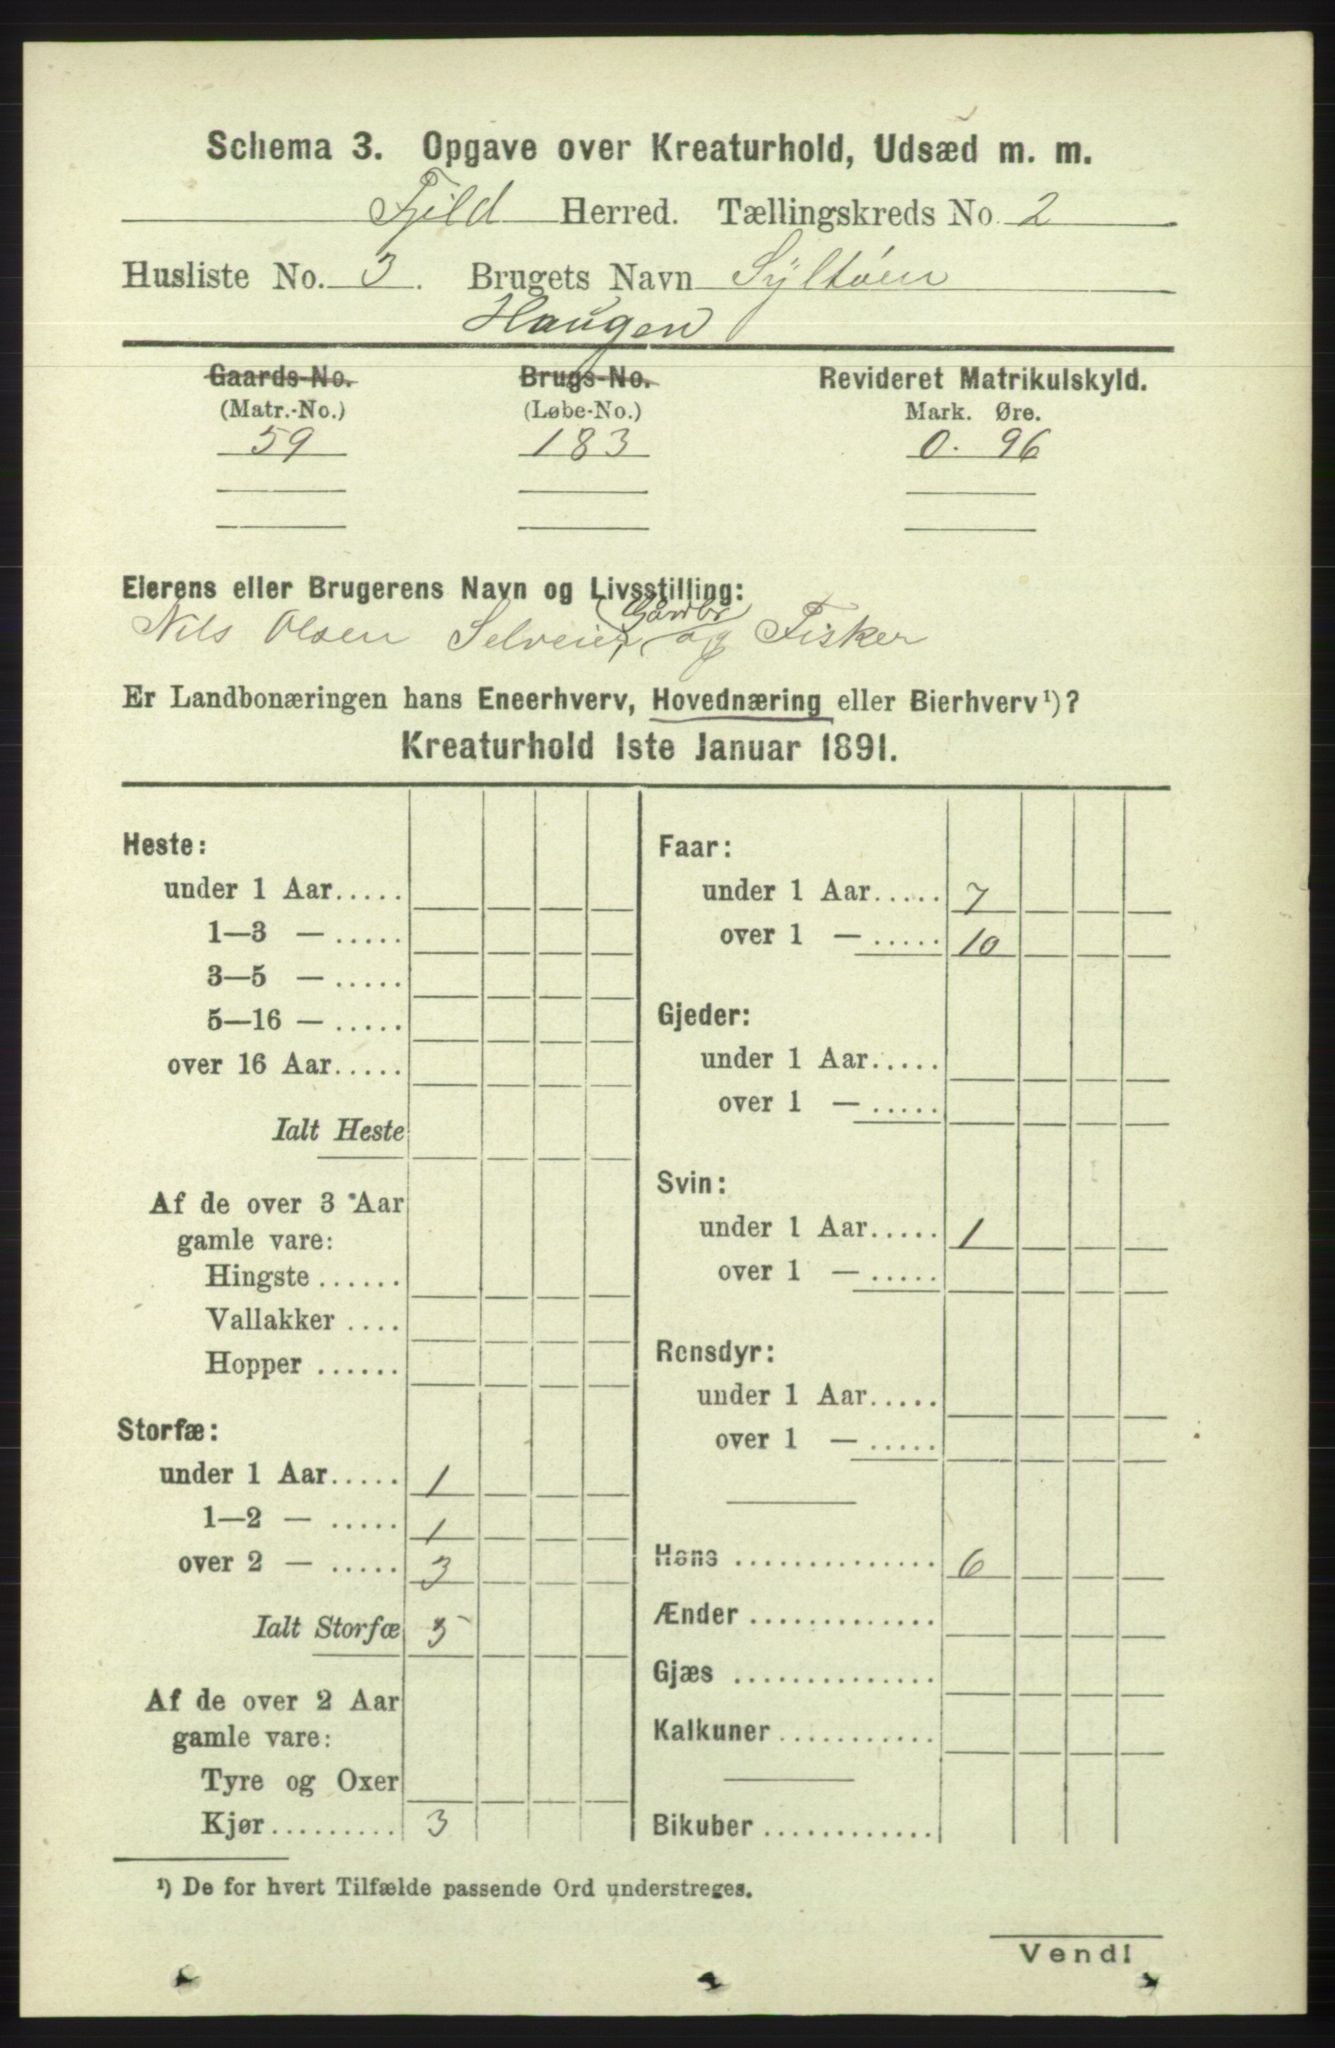 Schema 3. Opgave over Kreaturhold, Udsæd m. m.
Fjeld Herred. Tællingskreds No. 2
Husliste No. 3. Brugets Navn Syltøen
Haugen
Gaards-No. Brugs-No. Revideret Matrikulskyld.
(Matr.-No.) (Løbe-No.) Mark. Øre.
59 183 0. 96
Eierens eller Brugerens Navn og Livsstilling:
Gårdbr
Nils Olsen Selveier, og Fisker
Er Landbonæringen hans Eneerhverv, Hovednæring eller Bierhverv¹)?
Kreaturhold 1ste Januar 1891.
Heste:
under 1 Aar.....
1—3 — .....
3—5 — .....
5—16 — .....
over 16 Aar.....
Ialt Heste
Af de over 3 Aar
gamle vare:
Hingste ......
Vallakker ....
Hopper ......
Storfæ:
under 1 Aar..... 1
1—2 — ..... 1
over 2 — ..... 3
Ialt Storfæ 5
Af de over 2 Aar
gamle vare:
Tyre og Oxer
Kjør......... 3
Faar:
under 1 Aar..... 7
over 1 — ..... 10
Gjeder:
under 1 Aar.....
over 1 — .....
Svin:
under 1 Aar..... 1
over 1 — .....
Rensdyr:
under 1 Aar.....
over 1 — .....
Høns .............. 6
Ænder .............
Gjæs ..............
Kalkuner ...........
Bikuber ............
¹) De for hvert Tilfælde passende Ord understreges.
Vend!